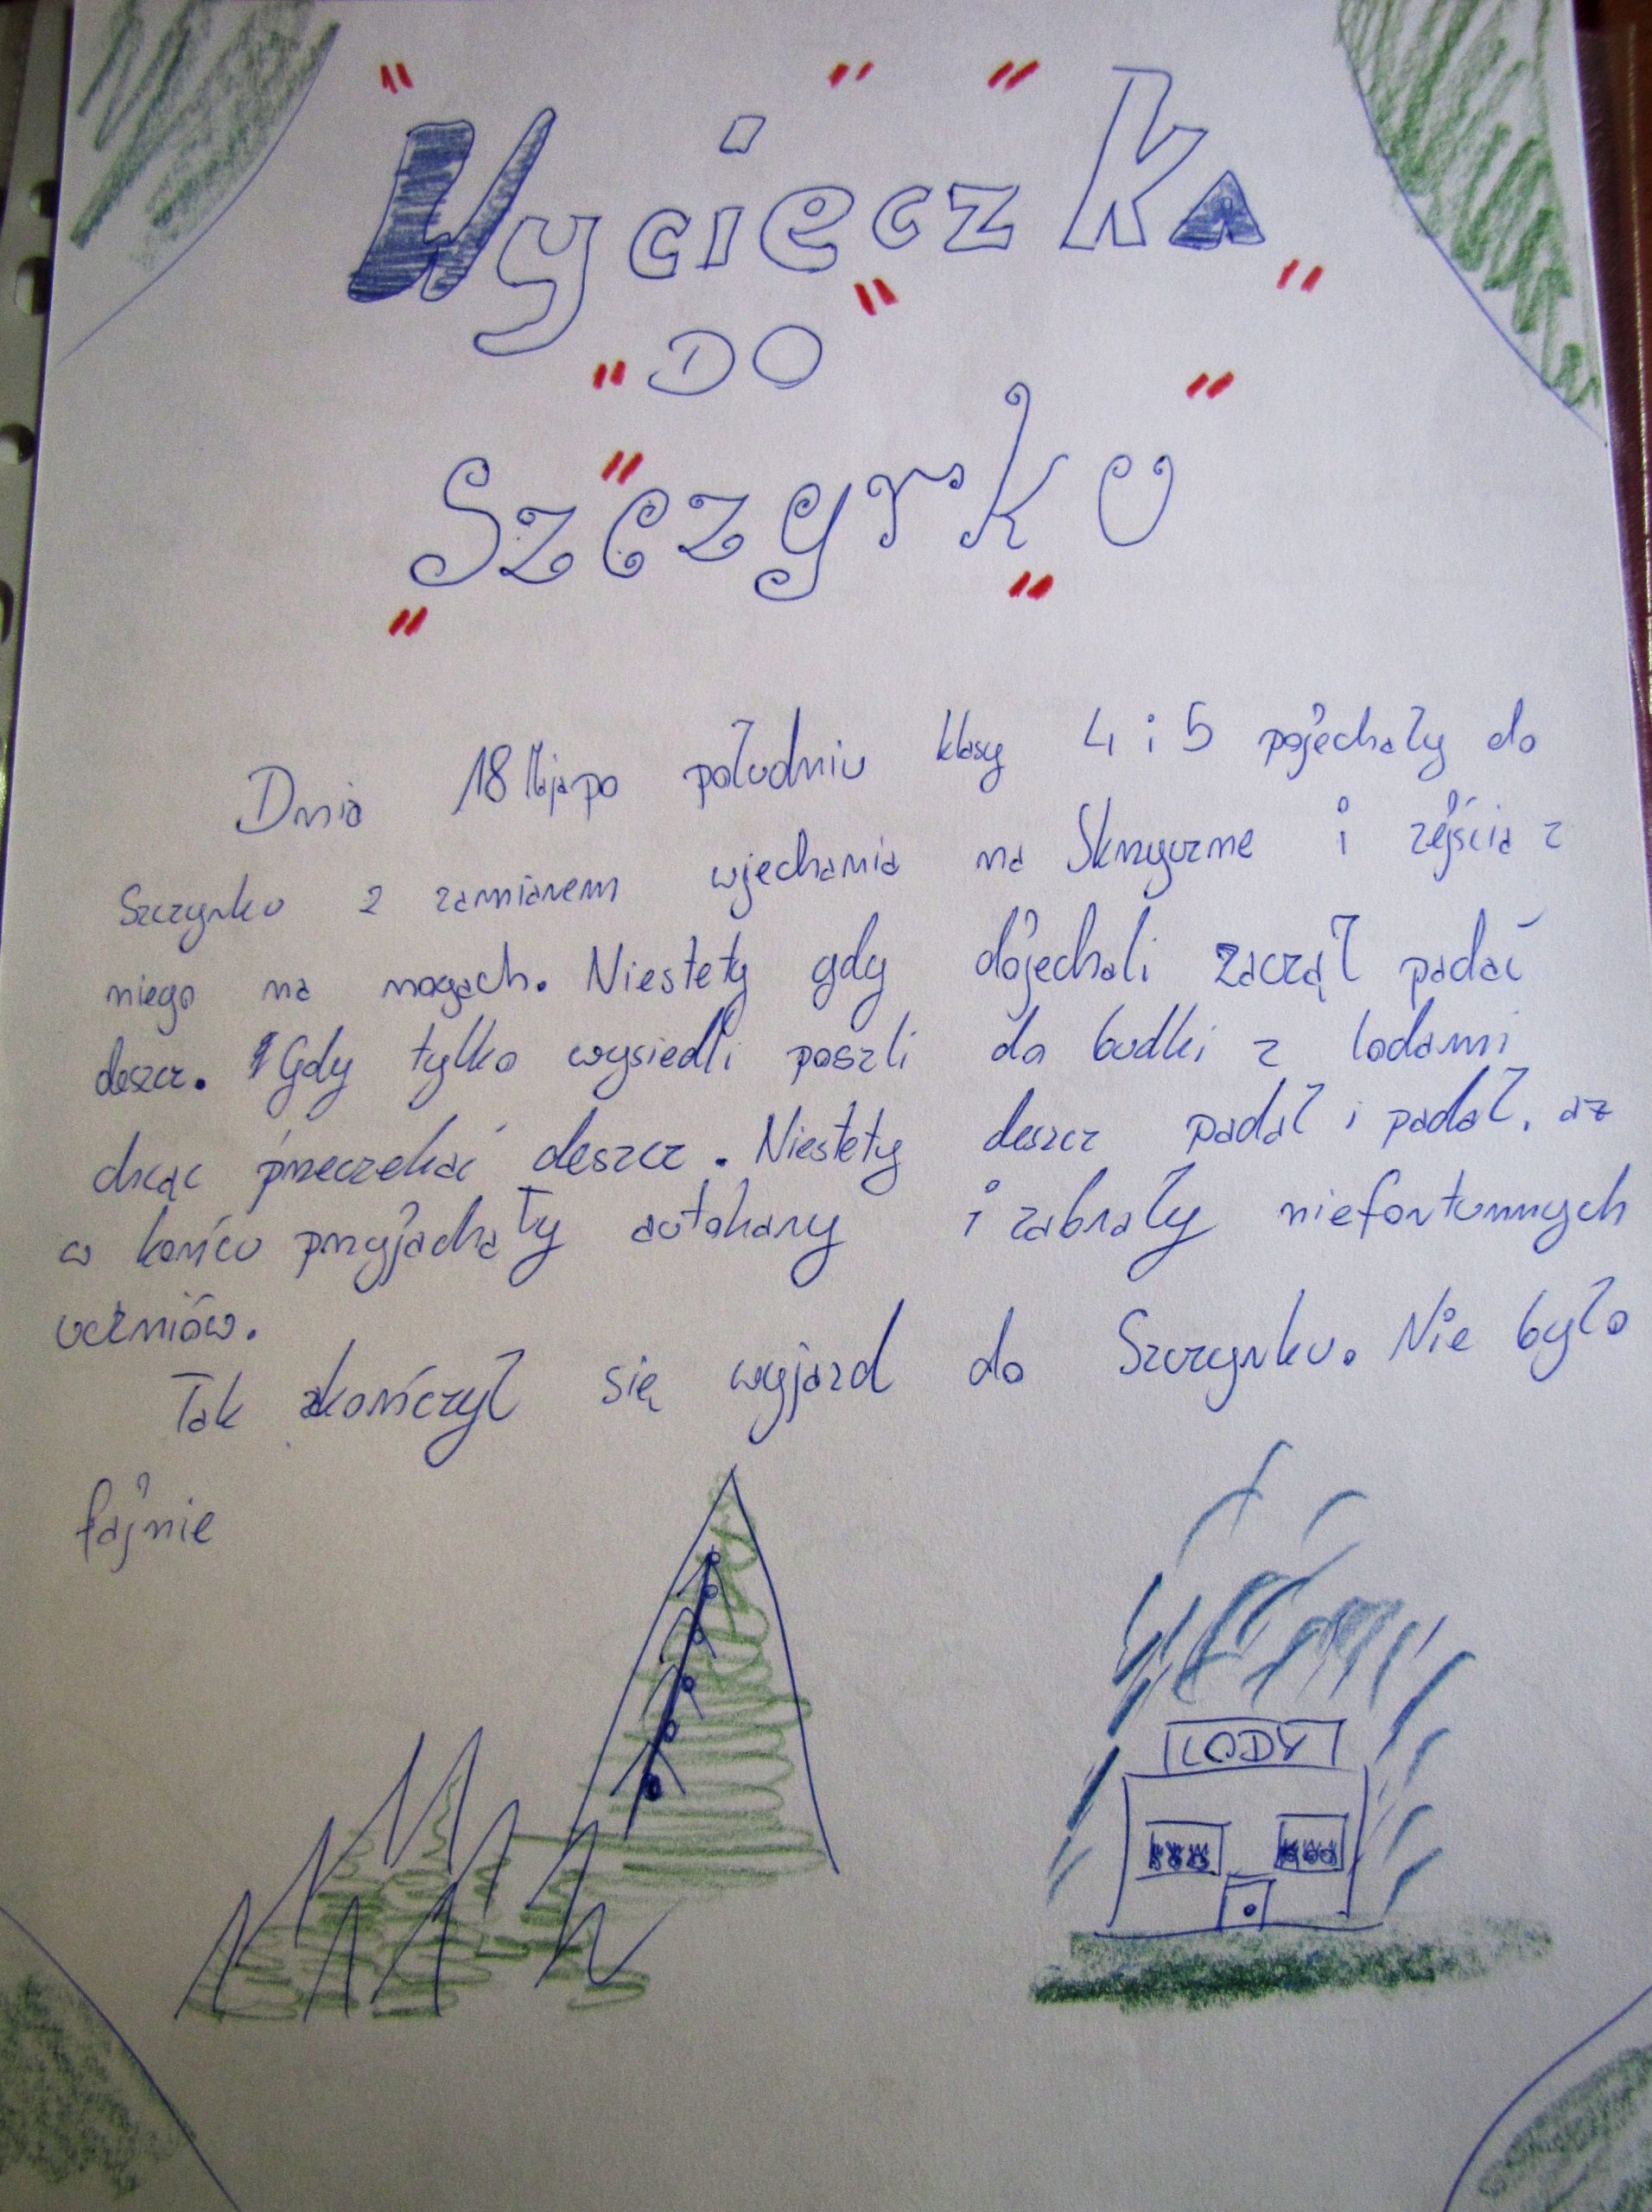 Wycieczka
DO
Szczyrku
Dnia 18 Maja po południu klasy 4 i 5 pojechały do
Szczyrku z zamiarem wjechania na Skrzyczne i zejścia z
niego na nogach. Niestety gdy dojechali zaczął padać
deszcz. Gdy tylko wysiedli poszli do budki z lodami
chcąc przeczekać deszcz. Niestety deszcz padał i padał, aż
w końcu przyjachały autokary i zabrały niefortunnych
uczniów.
Tak skończył się wyjazd do Szczyrku. Nie było
fajnie
LODY